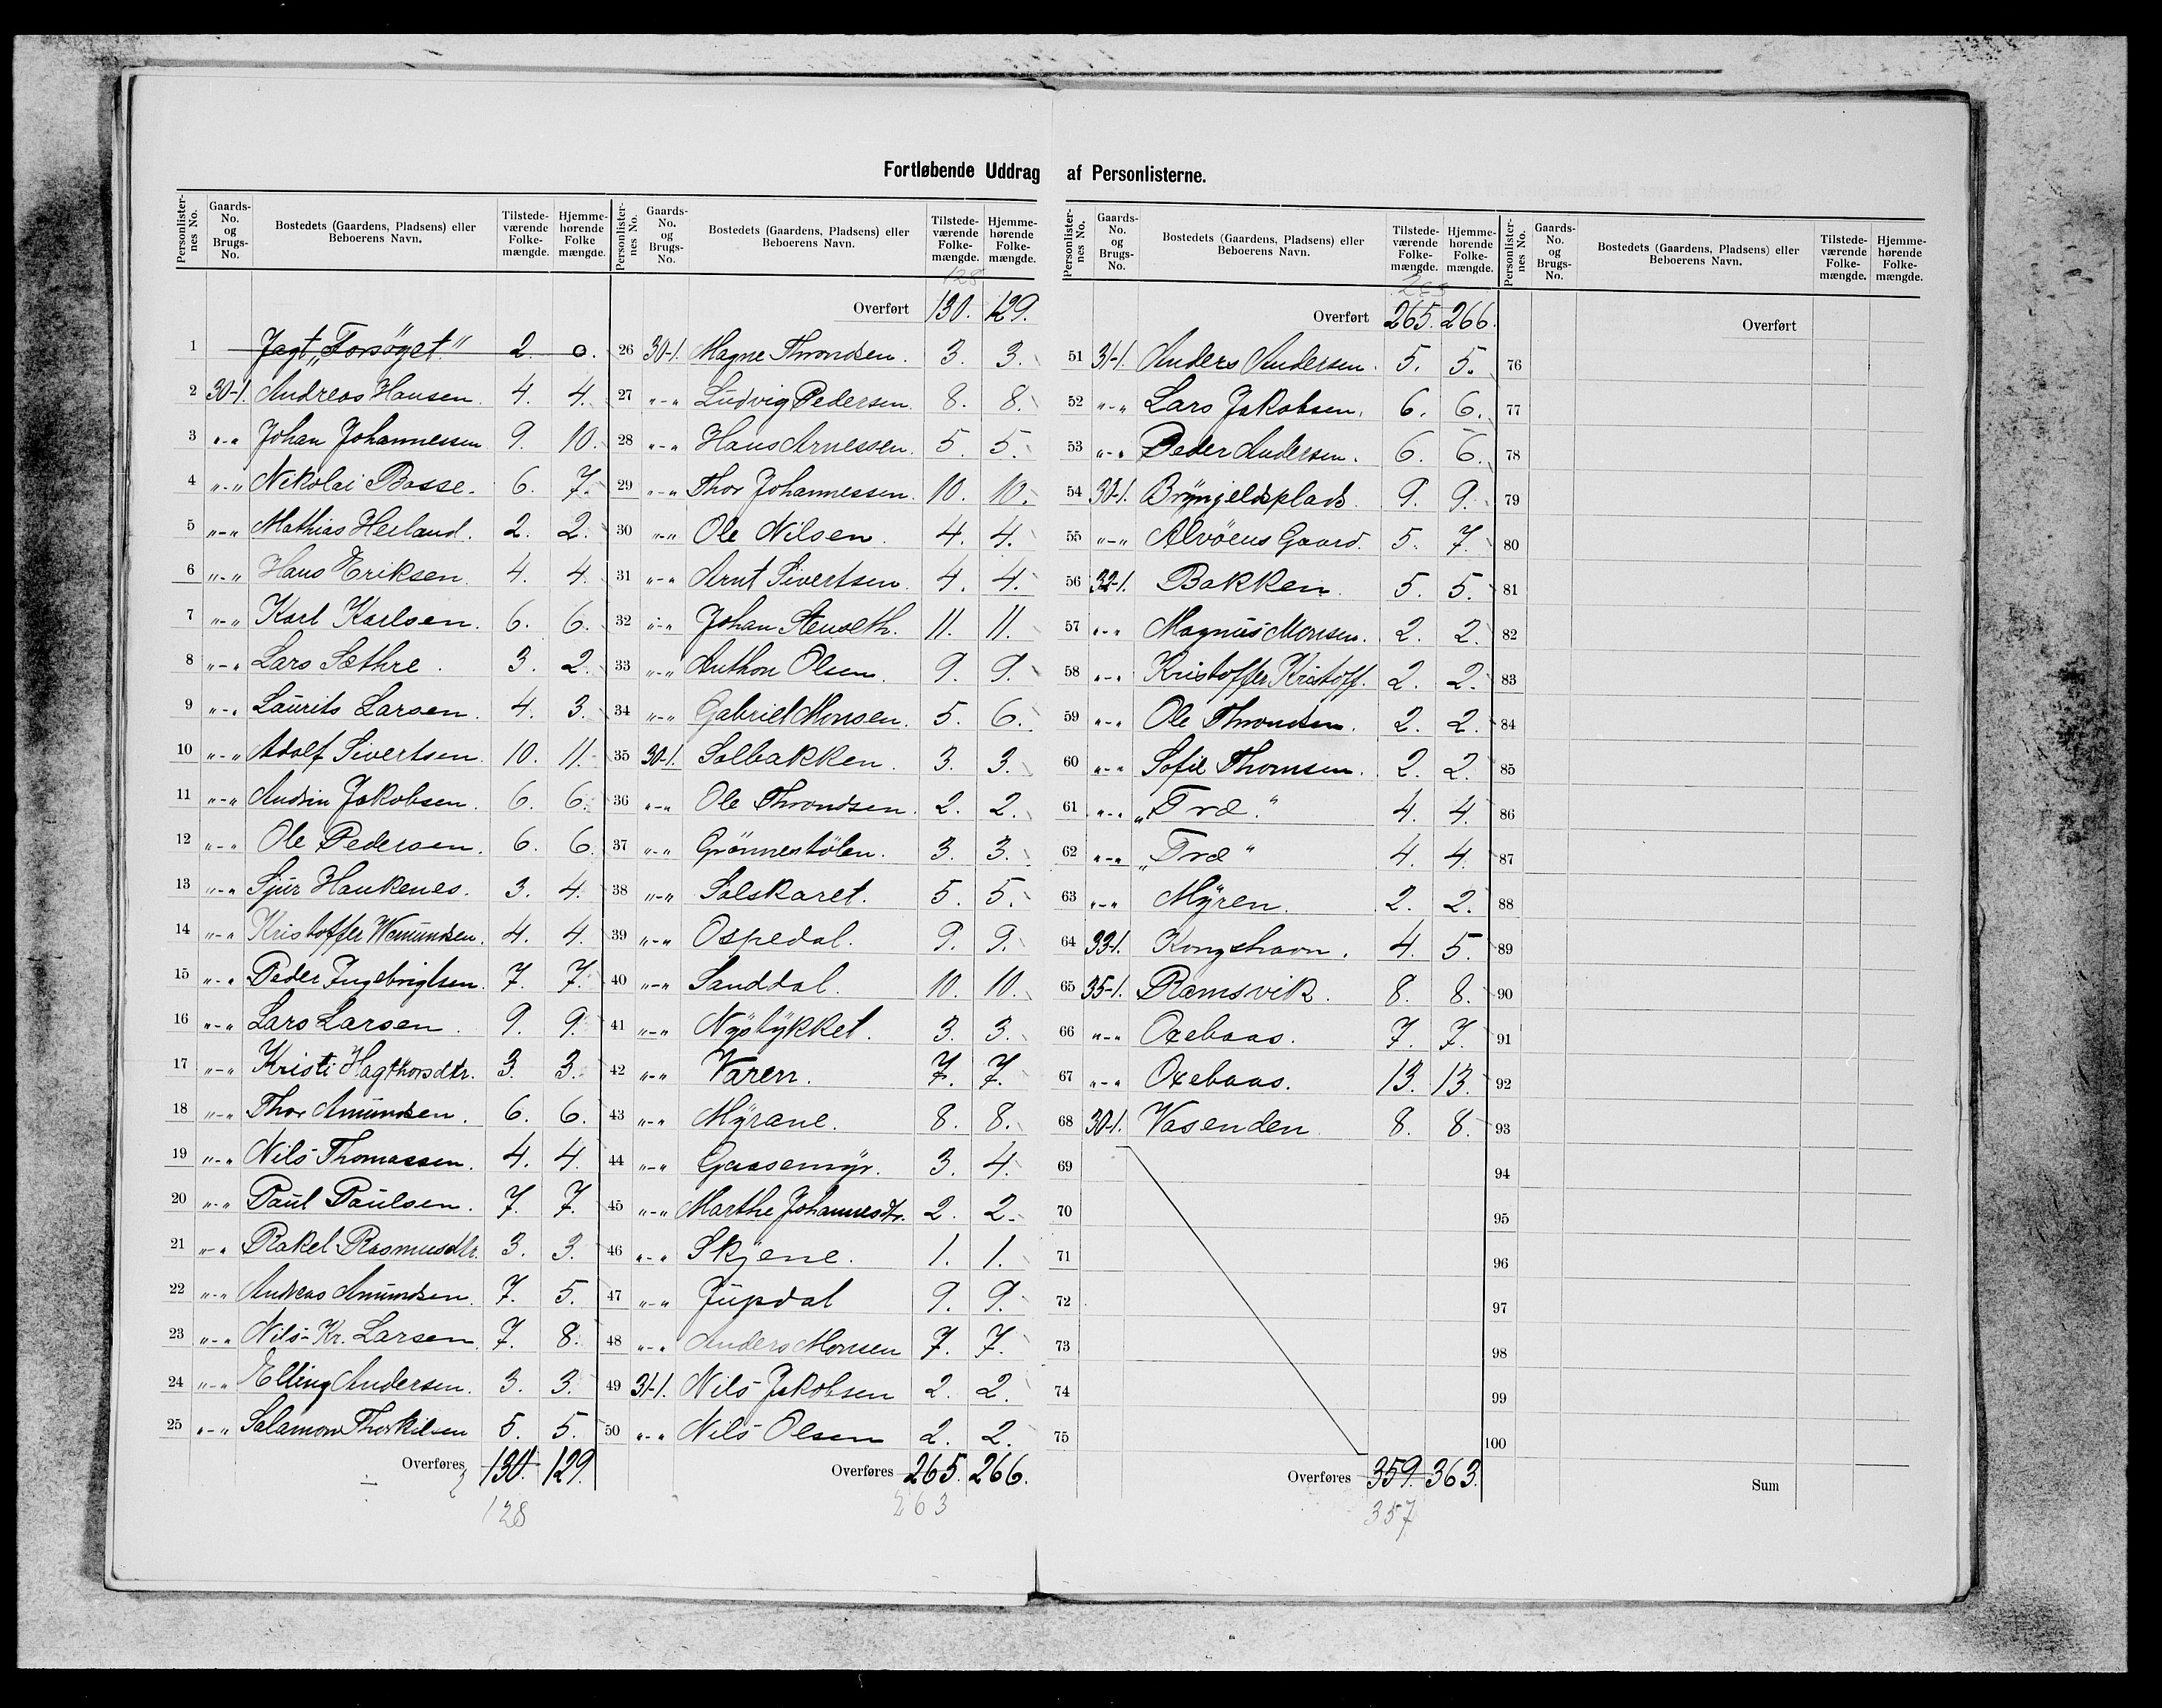 Fortløbende Uddrag af Personlisterne.
Personlisternes No. | Gaards-No. og Brugs-No. | Bostedets (Gaardens, Pladsens) eller Beboerens Navn. | Tilstedeværende Folkemængde. | Hjemmehørende Folkemængde.
1 Jagt „Forsöget" 2. 0.
2 30-1. Andreas Hansen. 4. 4.
3 "-" Johan Johannessen 9. 10.
4 "-" Nikolai Basse. 6. 7.
5 "-" Mathias Heiland. 2. 2.
6 "-" Hans Eriksen. 4. 4.
7 "-" Karl Karlsen. 6. 6.
8 "-" Lars Sæthre. 3. 2.
9 "-" Laurits Larsen. 4. 3.
10 "-" Adolf Sivertsen. 10. 11.
11 "-" Andrin Jakobsen. 6. 6.
12 "-" Ole Pedersen. 6. 6.
13 "-" Sjur Haukenes. 3. 4.
14 "-" Kristoffer Wemundsen. 4. 4.
15 "-" Peder Ingebrigtsen. 7. 7.
16 "-" Lars Larsen. 9. 9.
17 "-" Kristi Hagthorsdtr. 3. 3.
18 "-" Thor Amundsen. 6. 6.
19 "-" Nils Thomassen. 4. 4.
20 "-" Paul Paulsen. 7. 7.
21 "-" Rakel Rasmusdtr. 3. 3.
22 "-" Andreas Amundsen. 7. 5.
23 "-" Nils Kr. Larsen. 7. 8.
24 "-" Elling Andersen. 3. 3.
25 "-" Salamon Thorkilsen 5. 5.
Overføres 130. 129.
128
Personlisternes No. | Gaards-No. og Brugs-No. | Bostedets (Gaardens, Pladsens) eller Beboerens Navn. | Tilstedeværende Folkemængde. | Hjemmehørende Folkemængde.
128
Overført 130. 129.
26 30-1. Magne Throndsen. 3. 3.
27 "-" Ludvig Pedersen. 8. 8.
28 "-" Hans Arnessen. 5. 5.
29 "-" Thor Johannessen. 10. 10.
30 "-" Ole Nilsen. 4. 4.
31 "-" Arnt Sivertsen. 4. 4.
32 "-" Johan Stenseth. 11. 11.
33 "-" Anthon Olsen. 9. 9.
34 "-" Gabriel Monsen. 5. 6.
35 30-1. Solbakken. 3. 3.
36 "-" Ole Throndsen. 2. 2.
37 "-" Grönnestölen. 3. 3.
38 "-" Solskaret. 5. 5.
39 "-" Ospedal. 9. 9.
40 "-" Sanddal. 10. 10.
41 "-" Nystykket. 3. 3.
42 "-" Varen. 7. 7.
43 "-" Myrane. 8. 8.
44 "-" Gaasemyr. 3. 4.
45 "-" Marthe Johannesdtr. 2. 2.
46 "-" Skjene. 1. 1.
47 "-" Jupdal 9. 9.
48 "-" Anders Monsen 7. 7.
49 31-1. Nils Jakobsen 2. 2.
50 "-" Nils Olsen 2. 2.
Overføres 265. 266.
263
Personlisternes No. | Gaards-No. og Brugs-No. | Bostedets (Gaardens, Pladsens) eller Beboerens Navn. | Tilstedeværende Folkemængde. | Hjemmehørende Folkemængde.
263
Overført 265. 266.
51 31-1. Anders Andersen. 5. 5.
52 "-" Lars Jakobsen. 6. 6.
53 "-" Peder Andersen. 6. 6.
54 30-1. Brynjeldsplads. 9. 9.
55 "-" Alvöens Gaard. 5. 7.
56 32-1. Bakken. 5. 5.
57 "-" Magnus Monsen. 2. 2.
58 "-" Kristoffer Kristoff. 2. 2.
59 "-" Ole Throndsen. 2. 2.
60 "-" Sofie Thomsen. 2. 2.
61 "-" „Træ." 4. 4.
62 "-" „Træ" 4. 4.
63 "-" Myren. 2. 2.
64 33-1. Kongshavn. 4. 5.
65 35-1. Ramsvik. 8. 8.
66 "-" Oxebaas. 7. 7.
67 "-" Oxebaas. 13. 13.
68 30-1. Vasenden. 8. 8.
69
70
71
72
73
74
75
Overføres 359. 363.
357
Personlisternes No. | Gaards-No. og Brugs-No. | Bostedets (Gaardens, Pladsens) eller Beboerens Navn. | Tilstedeværende Folkemængde. | Hjemmehørende Folkemængde.
Overført
76
77
78
79
80
81
82
83
84
85
86
87
88
89
90
91
92
93
94
95
96
97
98
99
100
Sum